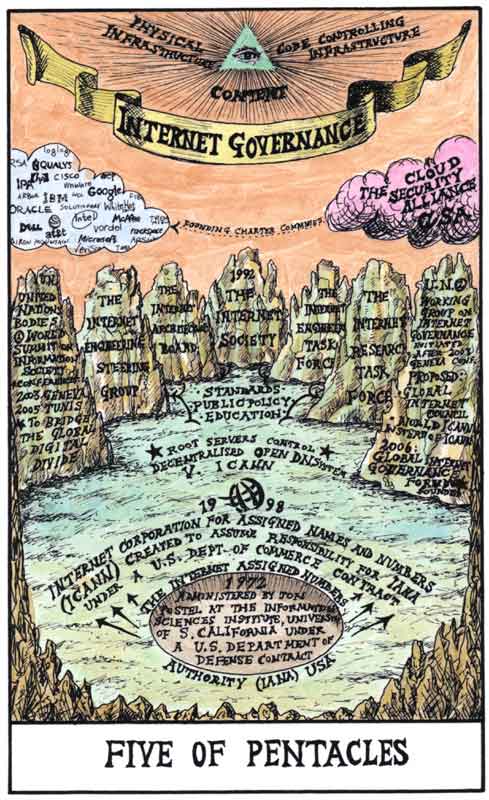 PHYSICAL
INFRASTRUCTURE
CODE CONTROLLING
INFRASTRUCTURE
CONTENT
INTERNET GOVERNANCE
loglogic
RSA QUALYS
CISCO
IBM Google
ORACLE
DELL at&t intel McAfee
vordel
rackspace
IRON MOUNTAIN Microsoft
CLOUD
THE SECURITY
ALLIANCE
FOUNDING CHARTER COMMITEE
UNITED
NATIONS
BODIES
WORLD
SUMMIT ON
INFORMATION
SOCIETY
2003 GENEVA
2005 TUNIS
TO BRIDGE
THE GLOBAL
DIGITAL
DIVIDE
THE
INTERNET
ENGINEERING
STEERING
GROUP
THE
INTERNET
ARCHITECTURE
BOARD
1992
THE
INTERNET
SOCIETY
THE
INTERNET
ENGINEER
TASK
FORCE
THE
INTERNET
RESEARCH
TASK
FORCE
U.N.
WORKING
GROUP ON
INTERNET
GOVERNANCE
INITIATD
AFTER
GENEVA CONF.
PROPOSED:
GLOBAL
INTERNET
COUNCIL
WORLD ICANN
INSTEAD OF ICANN
2006:
GLOBAL INTERNET
GOVERNANCE
FORUM
FOUNDED
STANDARDS
PUBLIC POLICY
EDUCATION
ROOT SERVERS CONTROL
DECENTRALISED OPEN DNS
V. ICANN
1998
INTERNET CORPORATION FOR ASSIGNED NAMES AND NUMBERS
(ICANN) CREATED TO ASSUME RESPONSIBILITY FOR IANA
UNDER A U.S. DEPT. OF COMMERCE CONTRACT
THE INTERNET ASSIGNED NUMBERS
1972
ADMINISTERED BY JON
POSTEL AT THE INFORMATION
SCIENCES INSTITUTE, UNIVERSITY
OF S. CALIFORNIA UNDER
A U.S. DEPARTMENT OF
DEFENSE CONTRACT
AUTHORITY (IANA) USA
FIVE OF PENTACLES